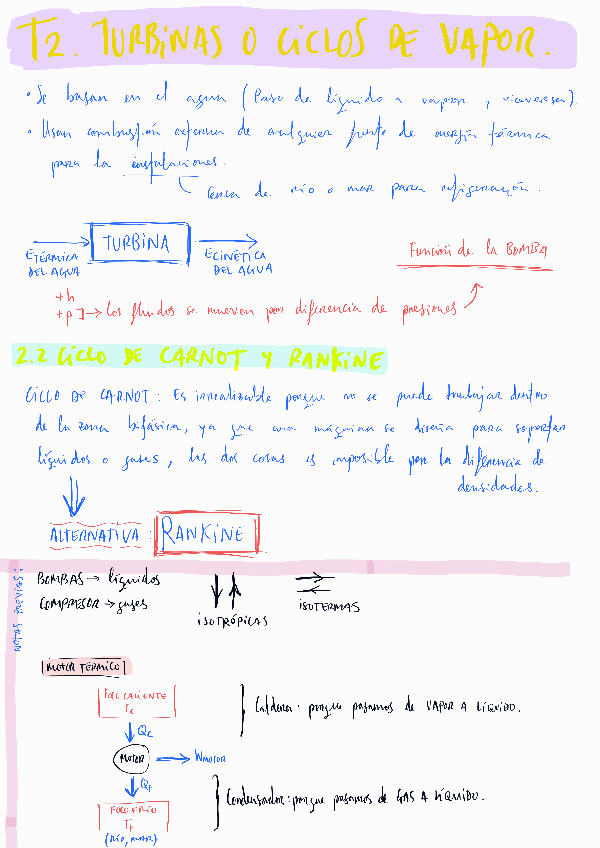 T2. TURBINAS O CICLOS DE VAPOR.
• Se basan en el agua (Paso de líquido a vapor y viceversa).
• Usan combustión externa de cualquier fuente de energía térmica
para la instalaciones.
Cerca de río o mar para refrigeración.
TURBINA
E TÉRMICA
DEL AGUA
E CINÉTICA
DEL AGUA
Función de la BOMBA
+h
+p ] → Los fluidos se mueven por diferencia de presiones
2.2 CICLO DE CARNOT Y RANKINE
CICLO DE CARNOT: Es irrealizable porque no se puede trabajar dentro
de la zona bifásica, ya que una máquina se diseña para soportar
líquidos o gases, las dos cosas es imposible por la diferencia de
densidades.
ALTERNATIVA: RANKINE
BOMBAS → líquidos
COMPRESOR → gases
ISOTRÓPICAS
ISOTERMAS
MOTOR TÉRMICO
FOCO CALIENTE
Tc
Caldera: porque pasamos de VAPOR A LÍQUIDO.
Qc
MOTOR → WMOTOR
QF
FOCO FRÍO
TF
(RÍO, MAR)
Condensador: porque pasamos de GAS A LÍQUIDO.